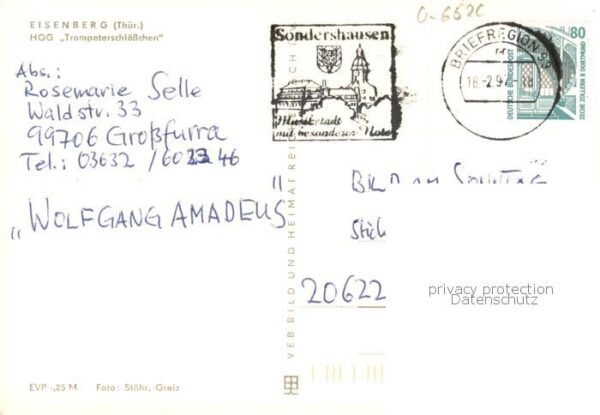 EISENBERG (Thür.)
HOG „Trompeterschlößchen"
Abs.:
Rosemarie Selle
Waldstr. 33
99706 Großfurra
Tel.: 03632 / 60 46
„WOLFGANG AMADEUS"
EVP -,25 M Foto: Stöhr, Greiz
VEB BILD UND HEIMAT REI
0-6520
Sondershausen
Musikstadt
mit besonderer Note
BRIEFREGION
18.-2.97
80
DEUTSCHE BUNDESPOST
ZECHE ZOLLERN II DORTMUND
BILD AM SONNTAG
Stich
20622
privacy protection
Datenschutz